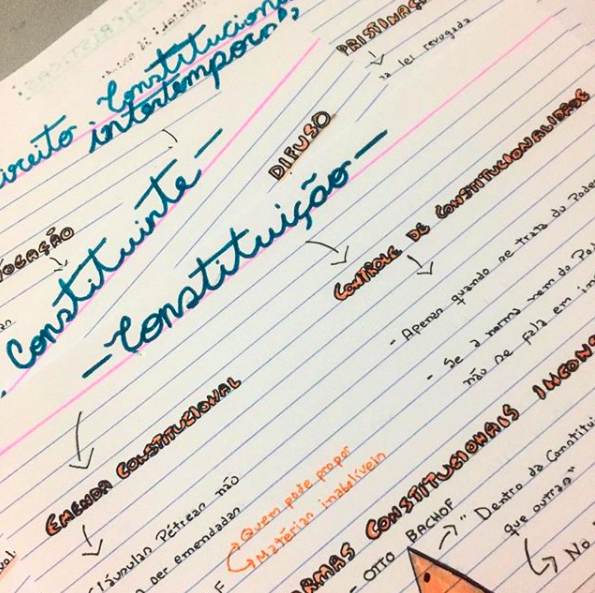 Direito Constitucional
intertemporal
PRISTINAÇ
da lei revogada
DIFUSO
VOCAÇÃO
Constituinte -
- Constituição -
CONTROLE DE CONSTITUCIONALIDADE
- Apenas quando se trata do Poder
- Se a norma vem do Po
não se fala em in
EMENDA CONSTITUCIONAL
Cláusulas Pétreas não
ser emendadas
Quem pode propor
Matérias inabolíveis
ORMAS CONSTITUCIONAIS INCONS
- OTTO BACHOF
"Dentro da Constitui
que outras"
No